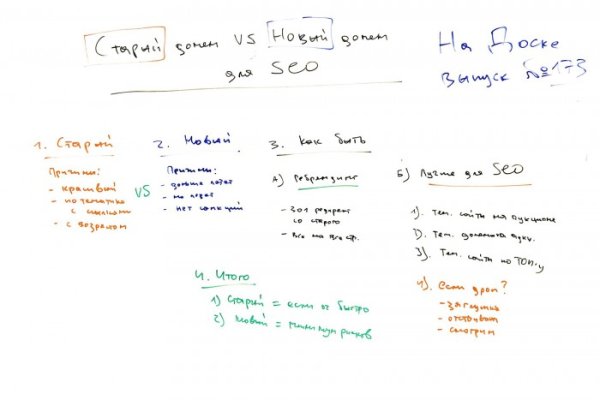 Старый домен VS Новый домен
для SEO
На Доске
Выпуск №173
1. Старый
Причины:
- красивый
- по тематике
с ссылками
- с возрастом
VS
2. Новый
Причины:
- дольше
- нет санкций
3. Как быть
А) Ребрендинг
- 301 редирект
со старого
- Все на все стр.
Б) Лучше для SEO
1). Тем. сайты на аукционе
2). Тем. домены аукц.
3). Тем. сайты по ТОП-у
4). Если дроп?
- заглушка
- смотрим
4. Итого
1) Старый = если ок быстро
2) Новый = минимум рисков